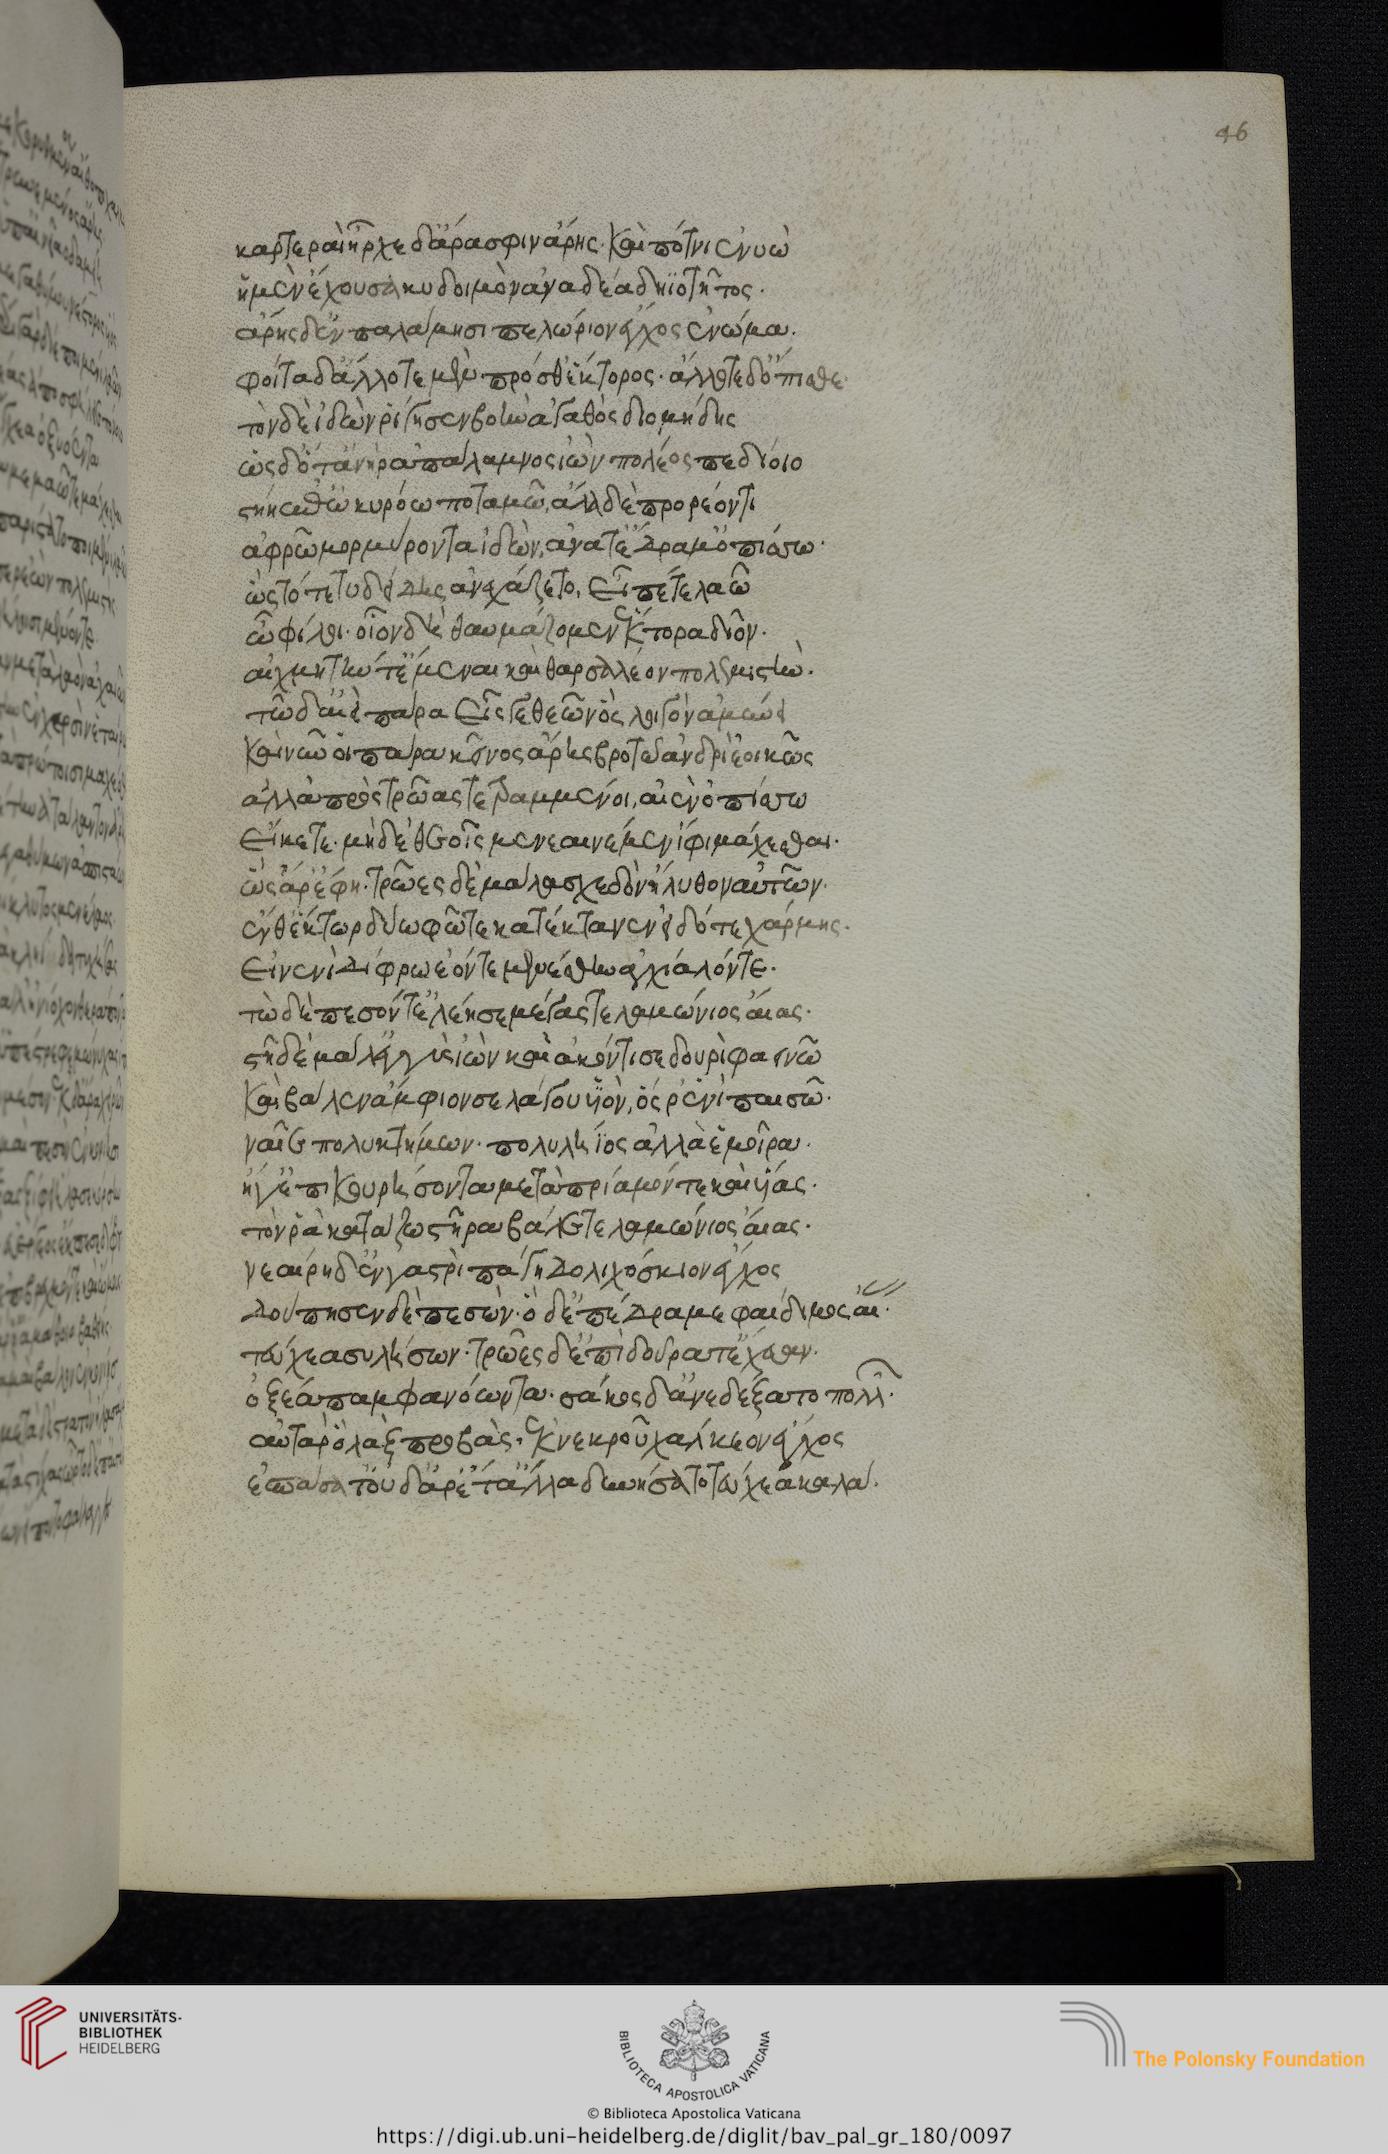 46
καρτεραὶ ἦρχε δ' ἄρα σφιν ἄρης. καὶ πότνι' ἐνυὼ
ἡ μὲν ἔχουσα κυδοιμὸν ἀναιδέα δηϊοτῆτος.
ἄρης δ' ἐν παλάμησι πελώριον ἔγχος ἐνώμα.
φοίτα δ' ἄλλοτε μὲν πρόσθ' ἕκτορος. ἄλλοτε δ' ὄπισθε.
τὸν δὲ ἰδὼν ῥίγησε βοὴν ἀγαθὸς διομήδης
ὡς δ' ὅτ' ἀνὴρ ἀπάλαμνος ἰὼν πολέος πεδίοιο
στήῃ ἐπ' ὠκυρόω ποταμῶ, ἅλα δὲ προρέοντι
ἀφρῶ μορμύροντα ἰδὼν, ἀνά τ' ἔδραμ' ὀπίσσω.
ὣς τότε τυδείδης ἀνεχάζετο, εἶπέ τε λαῶ
ὦ φίλοι. οἷον δὴ θαυμάζομεν ἕκτορα δῖον.
αἰχμητήν τ' ἔμεναι καὶ θαρσαλέον πολεμιστήν.
τῶ δ' αἰεὶ πάρα εἷς γε θεῶν ὃς λοιγὸν ἀμύνει
καὶ νῦν οἱ πάρα κεῖνος ἄρης βροτῶ ἀνδρὶ ἐοικώς
ἀλλὰ πρὸς τρῶας τετραμμένοι, αἰὲν ὀπίσσω
εἴκετε. μὴ δὲ θεοῖς μενεαινέμεν ἶφι μάχεσθαι.
ὣς ἄρ' ἔφη. τρῶες δὲ μάλα σχεδὸν ἤλυθον αὐτῶν.
ἔνθ' ἕκτωρ δύω φῶτε κατέκτανεν εἰδότε χάρμης.
εἰν ἑνὶ δίφρω ἐόντε μενέσθην ἀγχίαλόν τε.
τὼ δὲ πεσόντ' ἐλέησε μέγας τελαμώνιος αἴας.
στῆ δὲ μάλ' ἐγγὺς ἰὼν καὶ ἀκόντισε δουρὶ φαεινῶ
καὶ βάλεν ἄμφιον σελάγου υἱὸν, ὅς ῥ' ἐνὶ παισῶ.
ναῖε πολυκτήμων. πολυλήϊος ἀλλὰ ἑ μοῖρα.
ἦγ' ἐπικουρήσοντα μετὰ πρίαμόν τε καὶ υἷας.
τόν ῥα κατὰ ζωστῆρα βάλε τελαμώνιος αἴας.
νεαίρη δ' ἐν γαστρὶ πάγη δολιχόσκιον ἔγχος
δούπησεν δὲ πεσὼν. ὁ δ' ἐπέδραμε φαίδιμος αἴ.
τεύχεα συλήσων. τρῶες δ' ἐπὶ δούρατ' ἔχευαν.
ὀξέα παμφανόωντα. σάκος δ' ἀνεδέξατο πολλ.
αὐτὰρ ὁ λὰξ προσβὰς. ἐκ νεκροῦ χάλκεον ἔγχος
ἐσπάσατ' οὐδ' ἄρ' ἔτ' ἄλλα δυνήσατο τεύχεα καλὰ.
UNIVERSITÄTS-
BIBLIOTHEK
HEIDELBERG
BIBLIOTECA APOSTOLICA VATICANA
The Polonsky Foundation
© Biblioteca Apostolica Vaticana
https://digi.ub.uni-heidelberg.de/diglit/bav_pal_gr_180/0097